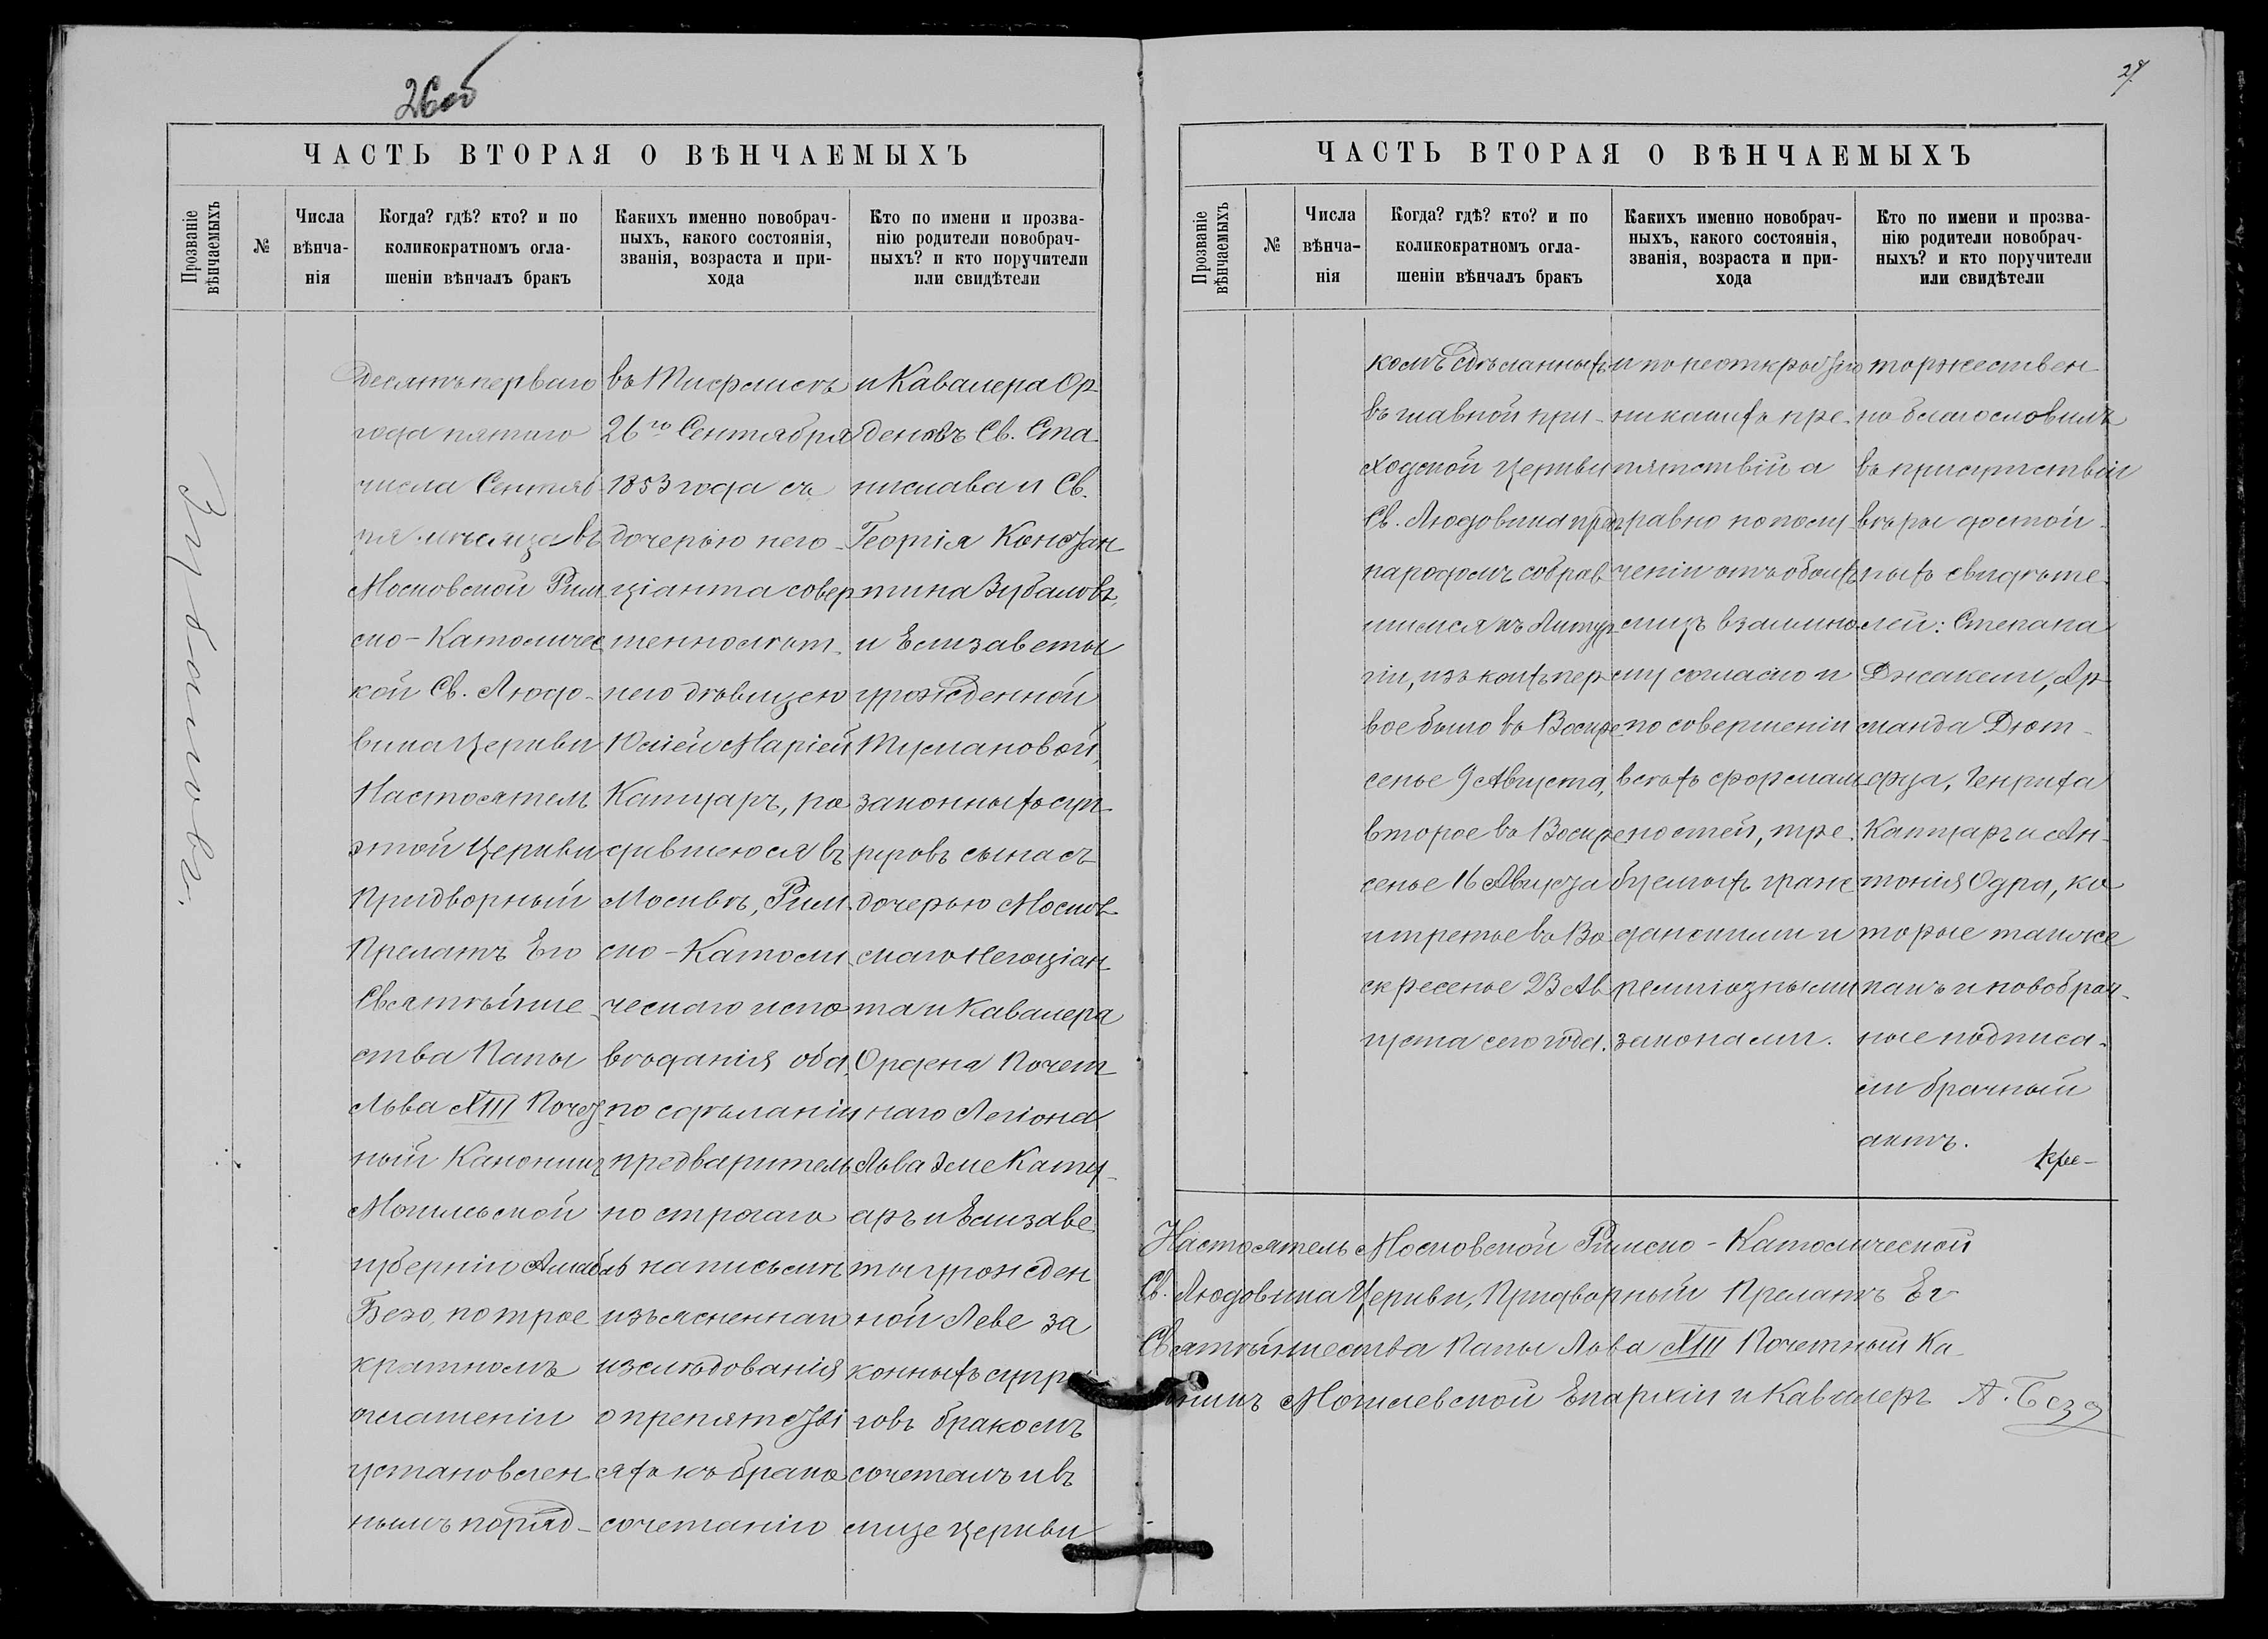 26об
ЧАСТЬ ВТОРАЯ О ВѢНЧАЕМЫХЪ
Прозваніе
вѣнчаемыхъ
№
Числа
вѣнча-
нія
Когда? гдѣ? кто? и по
коликократномъ огла-
шеніи вѣнчалъ бракъ
Какихъ именно новобрач-
ныхъ, какого состоянія,
званія, возраста и при-
хода
Кто по имени и прозва-
нію родители новобрач-
ныхъ? и кто поручители
или свидѣтели
Зубаловъ.
десятъ перваго
года пятаго
числа Сентяб-
ря мѣсяца въ
Московской Рим-
ско-Католичес-
кой Св. Людо-
вика Церкви
Настоятель
этой Церкви
Придворный
Прелатъ Его
Святѣйше-
ства Папы
Льва XIII Почет-
ный Каноникъ
Могилевской
губерніи
Безо, по трое
кратномъ
оглашеніи
установлен
нымъ поряд-
въ Тифлисѣ
26го Сентября
1853 года съ
дочерью него-
ціанта совер
шеннолѣт-
нею дѣвицею
Юліей Маріей
Катуаръ, ро
дившеюся въ
Москвѣ, Рим-
ско-Католи
ческаго испо
вѣданія оба,
по сдѣланіи
предваритель
но строгаго
на письмѣ
изъясненнаго
изслѣдованія
о препятстві
яхъ къ брако
сочетанію
и Кавалера Ор-
деновъ Св. Ста-
нислава и Св.
Георгія Констан
тина Зубаловъ,
и Елизаветы
урожденной
Тумановой,
законныхъ суп
руговъ сына съ
дочерью Москов
скаго негоціан
та и Кавалера
Ордена Почет
наго Легіона
Льва Эме Кату-
аръ и Елизаве
ты урожден
ной Леве за
конныхъ супру
говъ бракомъ
сочеталъ и въ
лице Церкви
27
ЧАСТЬ ВТОРАЯ О ВѢНЧАЕМЫХЪ
Прозваніе
вѣнчаемыхъ
№
Числа
вѣнча-
нія
Когда? гдѣ? кто? и по
коликократномъ огла-
шеніи вѣнчалъ бракъ
Какихъ именно новобрач-
ныхъ, какого состоянія,
званія, возраста и при-
хода
Кто по имени и прозва-
нію родители новобрач-
ныхъ? и кто поручители
или свидѣтели
комъ сдѣланныхъ
въ главной при-
ходской Церкви
Св. Людовика предъ
народомъ собрав
шимся къ Литур
гіи, изъ коихъ пер
вое было въ Воскре
сенье 9 Августа,
второе въ Воскре
сенье 16 Августа
и третье въ Во
скресенье 23 Ав
густа сего года.
и по неоткрытію
никакихъ пре-
пятствій а
равно по полу
ченіи отъ обоихъ
лицъ взаимно
му согласію и
по совершеніи
всѣхъ формаль
ностей, тре-
буемыхъ граж
данскими и
религіозными
законами.
торжествен
но благословилъ
въ присутствіи
вѣры достой-
ныхъ свидѣте-
лей: Степана
Джакели, Ар
манда Дют-
фуа, Генриха
Катуаръ и Ан-
тонія Одра, ко
торые также
какъ и новобрач-
ные подписа-
ли брачный
актъ.
Настоятель Московской Римско-Католической
Св. Людовика Церкви, Придворный Прелатъ Ег
Святѣйшества Папы Льва XIII Почетный Ка-
никъ Могилевской Епархіи и Кавалеръ А. Безо